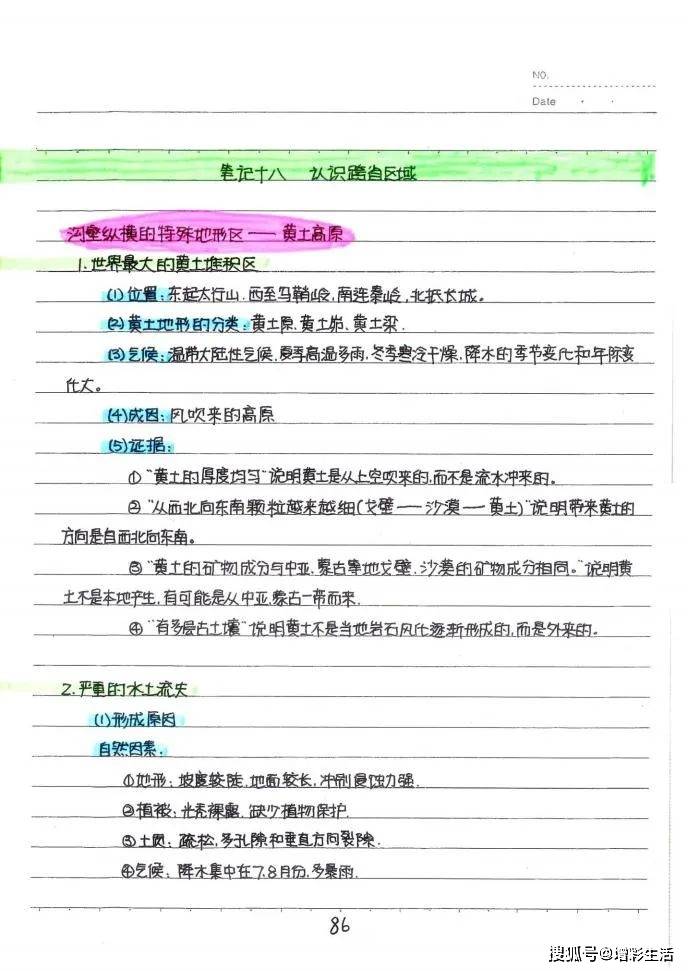 NO.
Date
笔记十八 认识跨省区域
沟壑纵横的特殊地形区——黄土高原
1.世界最大的黄土堆积区
(1)位置:东起太行山.西至乌鞘岭,南连秦岭,北抵长城。
(2)黄土地形的分类:黄土塬、黄土峁、黄土梁.
(3)气候:温带大陆性气候,夏季高温多雨,冬季寒冷干燥,降水的季节变化和年际变
化大。
(4)成因:风吹来的高原
(5)证据:
①“黄土的厚度均匀”说明黄土是从上空吹来的,而不是流水冲来的。
②“从西北向东南颗粒越来越细(戈壁——沙漠——黄土)”说明带来黄土的
方向是自西北向东南。
③“黄土的矿物成分与中亚,蒙古等地戈壁.沙漠的矿物成分相同。”说明黄
土不是本地产生,有可能是从中亚.蒙古一带而来.
④“有多层古土壤”说明黄土不是当地岩石风化逐渐形成的,而是外来的。
2.严重的水土流失
(1)形成原因
自然因素:
①地形:坡度较陡.地面较长,冲刷侵蚀力强.
②植被:光秃裸露.缺少植物保护.
③土质:疏松,多孔隙和垂直方向裂隙.
④气候:降水集中在7.8月份,多暴雨.
86
搜狐号@增彩生活